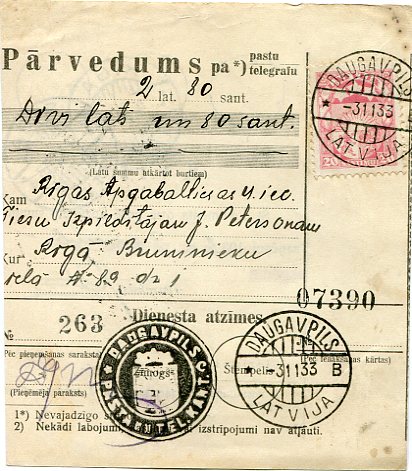 Pārvedums pa*) pastu
telegrafu
2 lat. 80 sant.
Divi lats un 80 sant.
(Latu summu atkārtot burtiem)
DAUGAVPILS
* -3 1 1 33
LATVIJA
Kam Rīgas Apgabaltiesas 4. iec.
Tiesu Izpildītājam J. Petersonam
Kur: Rīgā Bruņinieku
ielā # 89 dz 1
07390
Dienesta atzīmes
№ 263
Pēc pieņemšanas saraksta
(Pēc ienākšanas kārtas)
(Pieņēmēja paraksts)
DAUGAVPILS
Zīmogs
Stempeli
DAUGAVPILS
* -3 1 1 33 B
LATVIJA
1*) Nevajadzīgo
2) Nekādi labojumi vai izstrīpojumi nav atļauti.